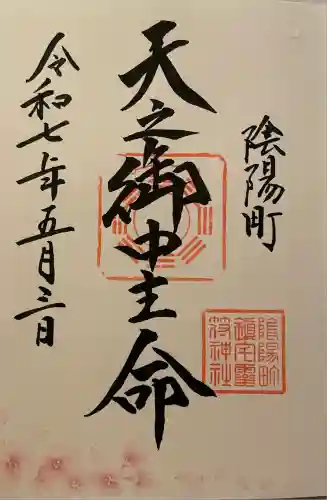 陰陽町
天之御中主命
令和七年五月三日
陰陽町
鎮宅霊
符神社